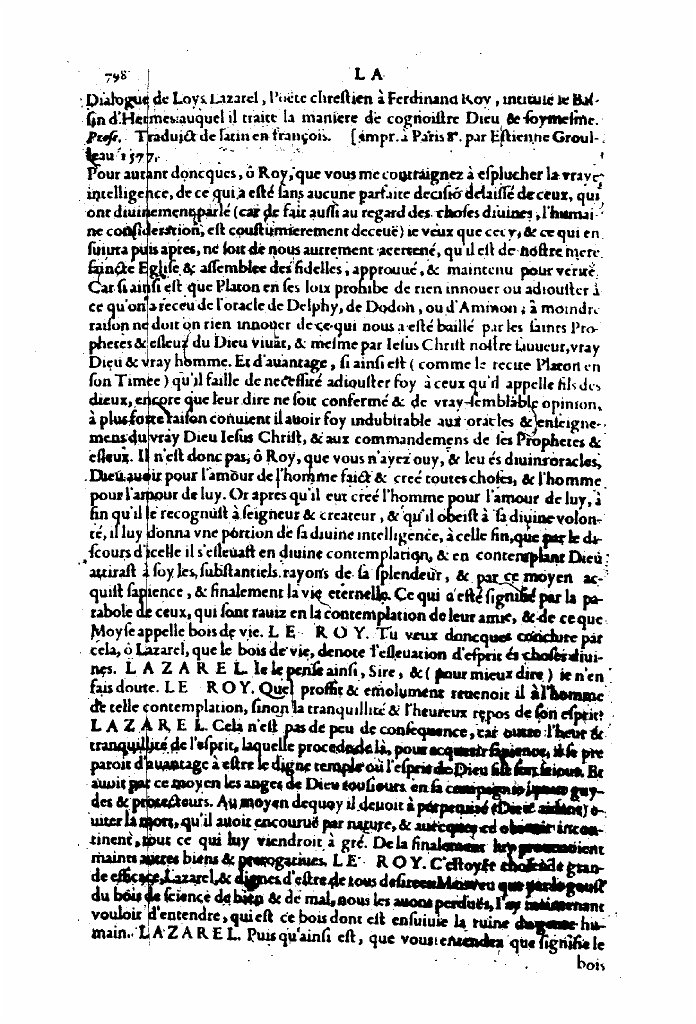 798 LA
Dialogue de Loys Lazarel, Poëte chrestien à Ferdinand Roy, intitulé le Bas-
sin d'Hermes: auquel il traite la maniere de cognoistre Dieu & soymesme.
Prose. Traduict de latin en françois. [impr. à Paris 8º. par Estienne Groul-
leau 1577.
Pour autant doncques, ô Roy, que vous me contraignez à esplucher la vraye
intelligence, de ce qui a esté sans aucune parfaite decisiō delaissé de ceux, qui
ont diuinement parlé (car de fait aussi au regard des choses diuines, l'humai-
ne consideration, est coustumierement deceuë) ie veux que cecy, & ce qui en
suiura puis apres, ne soit de nous autrement acertené, qu'il est de nostre mere
saincte Eglise & assemblee des fidelles, approuué, & maintenu pour verité.
Car si ainsi est que Platon en ses loix prohibe de rien innouer ou adiouster à
ce qu'on a receu de l'oracle de Delphy, de Dodon, ou d'Ammon; à moindre
raison ne doit on rien innouer de ce qui nous a esté baillé par les saints Pro-
phetes & esleuz du Dieu viuāt, & mesme par Iesus Christ nostre sauueur, vray
Dieu & vray homme. Et d'auantage, si ainsi est (comme le recite Platon en
son Timée) qu'il faille de necessité adiouster foy à ceux qu'il appelle fils des
dieux, encore que leur dire ne soit confermé & de vray-semblable opinion,
à plus forte raison conuient il auoir foy indubitable aux oracles & enseigne-
mens du vray Dieu Iesus Christ, & aux commandemens de ses Prophetes &
esleuz. Il n'est donc pas, ô Roy, que vous n'ayez ouy, & leu és diuins oracles,
Dieu auoir pour l'amour de l'homme faict & creé toutes choses, & l'homme
pour l'amour de luy. Or apres qu'il eut creé l'homme pour l'amour de luy, à
fin qu'il le recognust à seigneur & createur, & qu'il obeist à sa diuine volon-
té, il luy donna vne portion de sa diuine intelligence, à celle fin, que par le di-
scours d'icelle il s'esleuast en diuine contemplation, & en contemplant Dieu
attirast à soy les substantiels rayons de sa splendeur, & par ce moyen ac-
quist sapience, & finalement la vie eternelle. Ce qui a esté signifié par la pa-
rabole de ceux, qui sont rauiz en la contemplation de leur amie, & de ce que
Moyse appelle bois de vie. LE ROY. Tu veux doncques conclure par
cela, ô Lazarel, que le bois de vie, denote l'esleuation d'esprit és choses diui-
nes. LAZAREL. Ie le pense ainsi, Sire, & (pour mieux dire) ie n'en
fais doute. LE ROY. Quel proffit & emolument reuenoit il à l'homme
de telle contemplation, sinon la tranquillité & l'heureux repos de son esprit?
LAZAREL. Cela n'est pas de peu de consequence, car outre l'heur &
tranquillité de l'esprit, laquelle procede de là, pour acquerir sapience, il se pre
paroit d'auantage à estre le digne temple où l'esprit de Dieu fist son seiour. Et
auoit par ce moyen les anges de Dieu tousiours en sa compaignie guy-
des & protecteurs. Au moyen dequoy il deuoit à perpetuité (Dieu aidant) e-
uiter la mort, qu'il auoit encouruë par nature, & auecques ce obtenir incon-
tinent, tout ce qui luy viendroit à gré. De la finalement luy prouenoient
maints autres biens & prerogatiues. LE ROY. C'estoyēt choses de gran-
de efficace, Lazarel, & dignes d'estre de tous desirees. Mais veu que par le goust
du bois de science de bien & de mal, nous les auons perdues, i'ay maintenant
vouloir d'entendre, qui est ce bois dont est ensuiuie la ruine du genre hu-
main. LAZAREL. Puis qu'ainsi est, que vous entendez que signifie le
bois